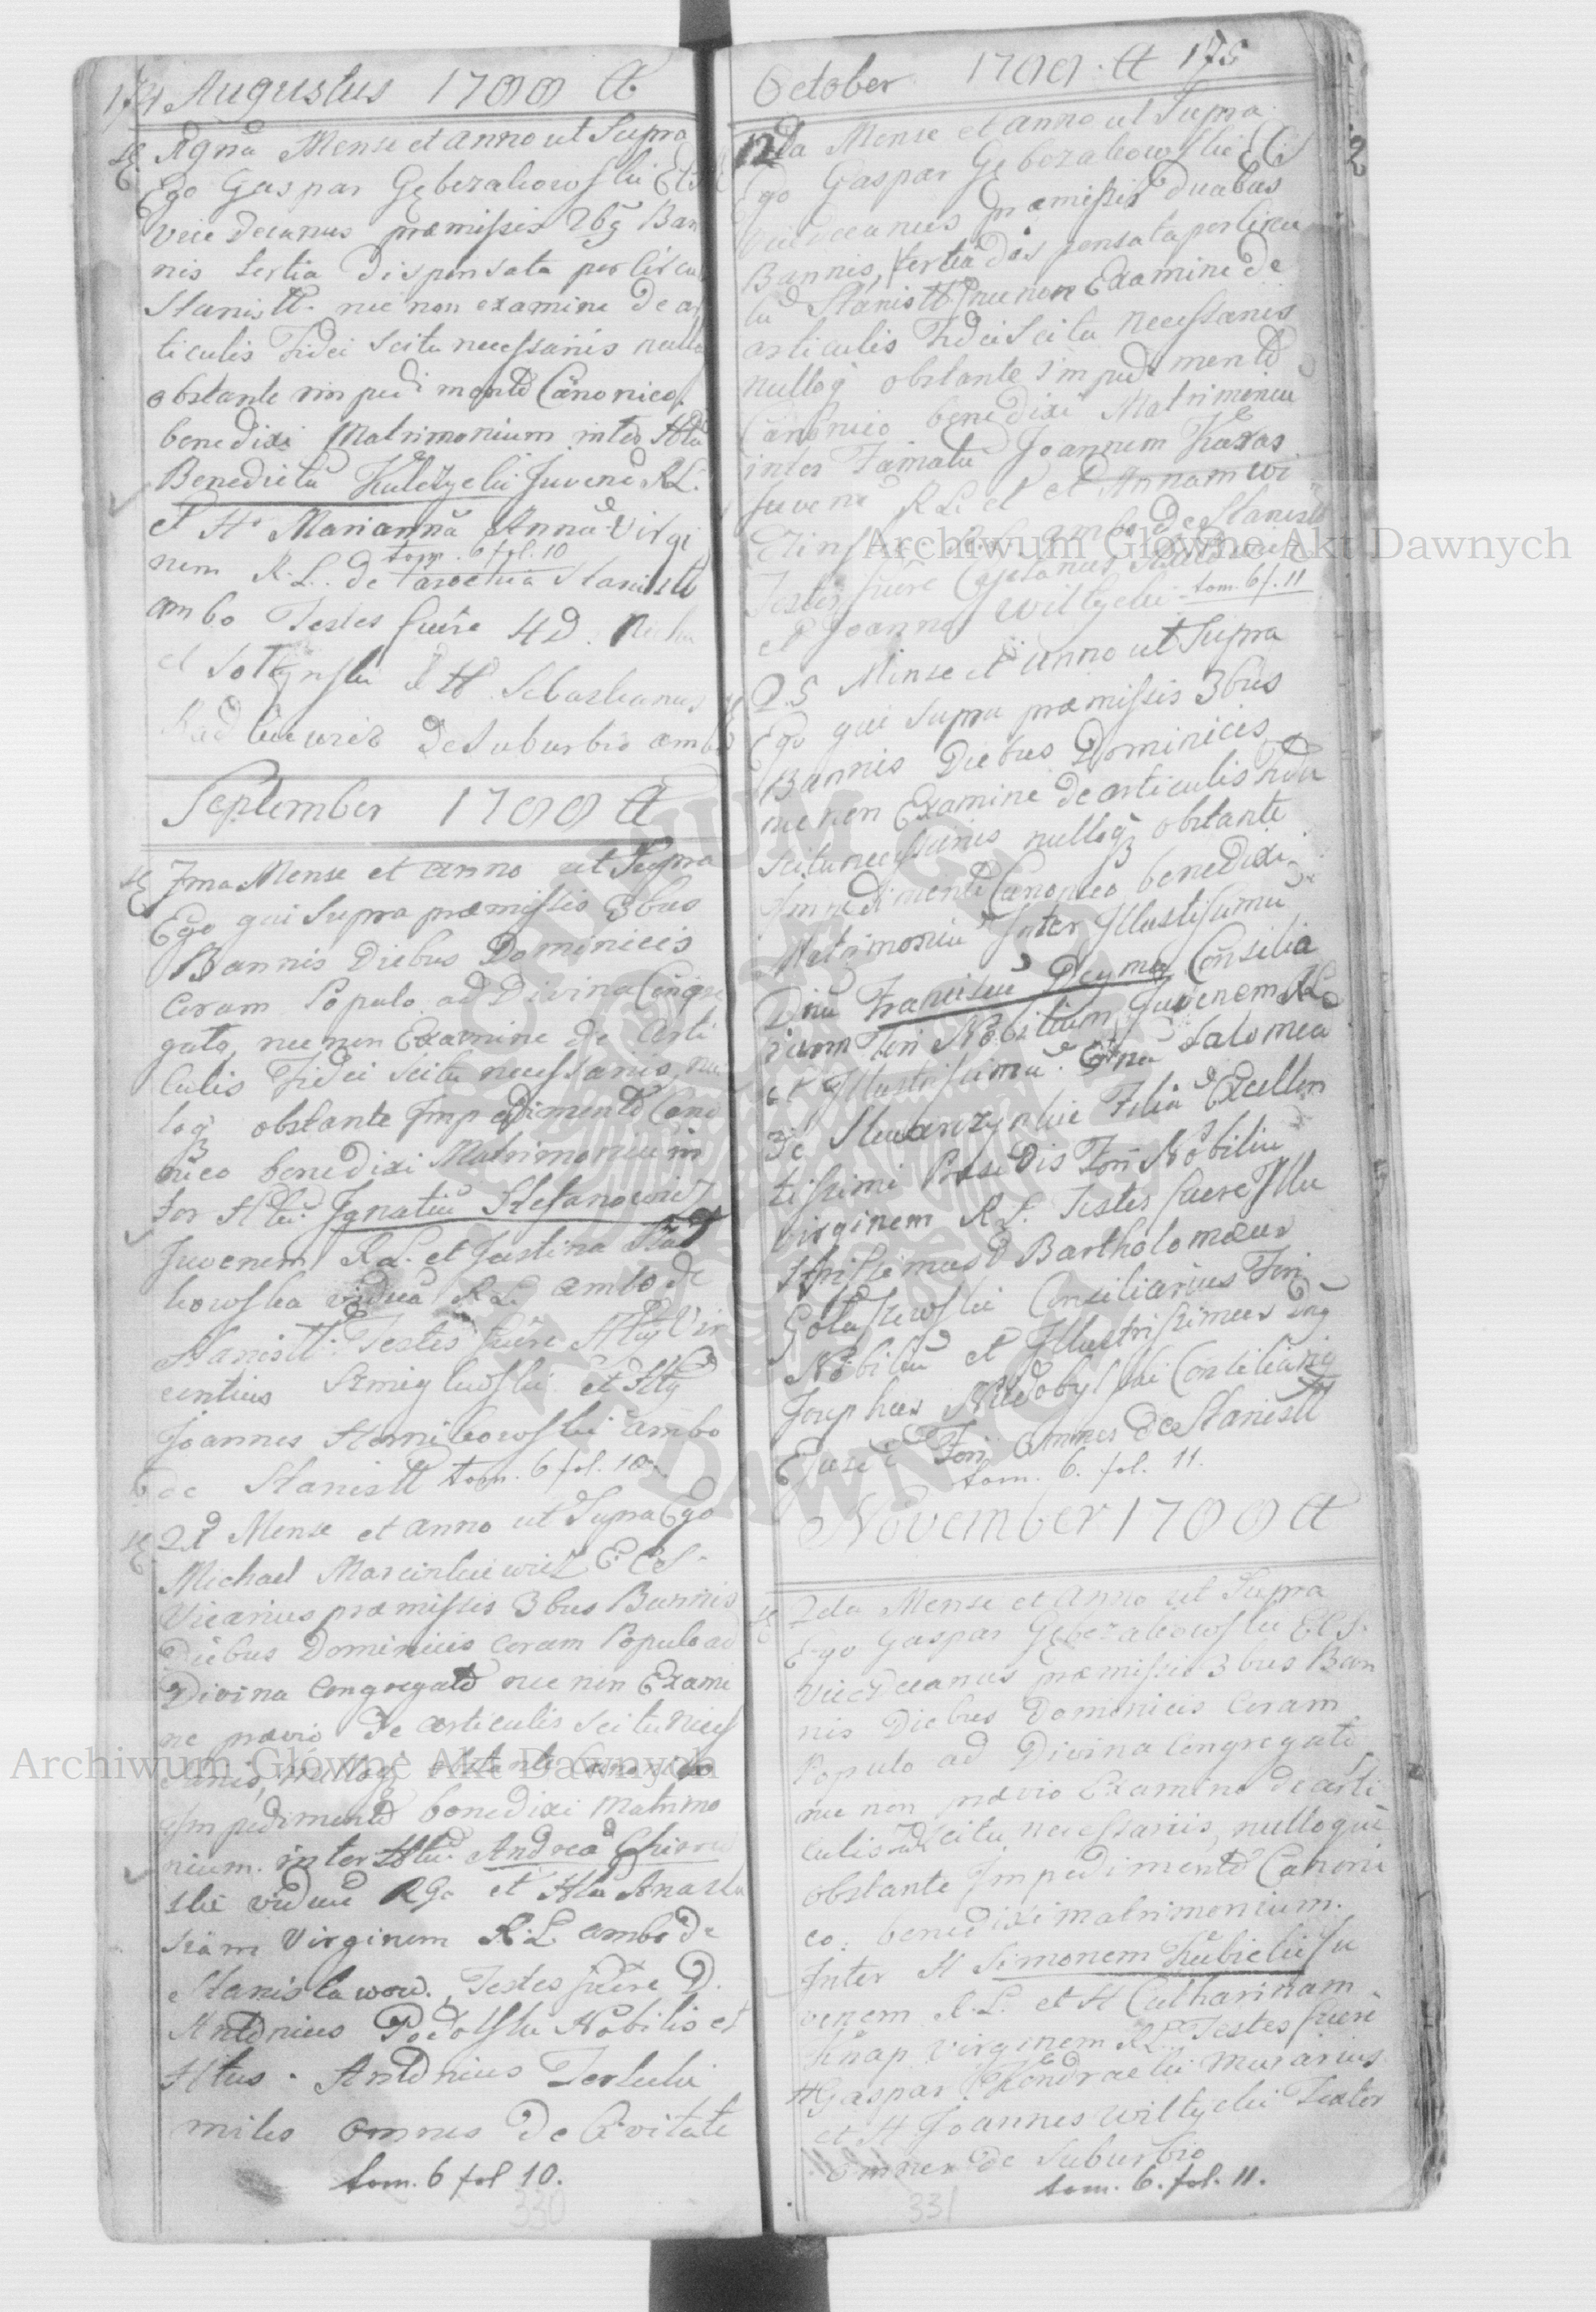 174 Augustus 1788 A
Agna Mense et anno ut Supra
Ego Gaspar Gębczakowski
Vice Decanus præmissis 2bq Ban
nis tertia dispensata per Circu
Stanisłł. nec non examine de ar
ticulis Fidei scitu necessariis nullo
obstante impedimento Canonico
benedixi Matrimonium inter Htu
Benedictu Kuletycki Juvene R.L.
et H. Mariannã Annã Virgi
tom. 6 fol. 10
nem R.L. de Parochia Stanisłł
ambo Testes fuere HD.
et H. Sebastianus
de Suburbio ambo
September 1788 A
7ma Mense et anno ut Supra
Ego qui Supra præmissis 3bus
Bannis Diebus Dominicis
Coram Populo ad Divina Congre
gato, nec non Examine de Arti
culis Fidei scitu necessariis, nu
loq obstante Impedimento Cano
nico benedixi Matrimonium in
ter Htu. Ignatiu Stefanowicz
Juvenem R.L. et Justina
kowska vidua R.L. ambo de
Stanisłł. Testes fuere Htq Vin
centius Szmigluwski et Htq
Joannes ambo
de Stanisłł tom. 6 fol. 10.
21 Mense et anno ut Supra Ego
Michael Marcinkiewicz E.C.S.
Vicarius præmissis 3bus Bannis
Diebus Dominicis coram Populo ad
Divina Congregato nec non Exami
ne prævio de articulis scitu necess
ariis, nulloq obstante Canonico
Impedimento benedixi Matrimo
nium. inter Htu. Andrea
ski viduu RG. et Hta Anasta
siam Virginem R.L. ambo de
Stanisławow. Testes fuere D.
Antonius Podolski Nobilis et
Htus. Antonius Terlecki
miles omnes de Civitate
tom. 6 fol 10.
330
October 1788. A 175
12da Mense et anno ut Supra
Ego Gaspar Gębczakowski ECS
Vice Decanus præmissis duabus
Bannis, tertia dispensata per Circu
lu Stanisłł nec non Examine de
articulis Fidei Scitu necessariis
nulloq obstante impedimento
Canonico benedixi Matrimoniu
inter Famatu Joannem Karas
Juvene R.L. et Annam Wi
ambo de Stanisłł
Testes fuere Cajetanus
et Joannes Wiltycki tom. 6 f. 11
25 Mense et anno ut Supra
Ego qui Supra præmissis 3bus
Bannis Diebus Dominicis
nec non Examine de articulis Fidei
scitu necessariis nulloq obstante
Impedimento Canonico benedixi
Matrimoniu Inter Illustrissimu
Dnu Franciscu Deyma Consilia
rium Fori Nobilium Juvenem R.L.
et Illustrissimã Dnã Salomea
de Filia Excellen
tissimi Præsidis Fori Nobiliu
virginem R.L. Testes fuere Illu
strissimus D Bartholomæus
Gołaszewski Consiliarius Fori
Nobiliu et Illustrissimus Dnq
Josephus Niedobylski Consiliariq
Ejusde Fori omnes de Stanisłł
tom. 6. fol. 11.
November 1788 A
2da Mense et Anno ut Supra
Ego Gaspar Gębczakowski ECS.
Vice Decanus præmissis 3bus Ban
nis Diebus Dominicis Coram
Populo ad Divina Congregato
nec non prævio Examine de arti
culis scitu necessariis, nulloque
obstante Impedimento Canoni
co: benedixi matrimonium.
Inter H Simonem Kubicki Ju
venem R.L. et H Catharinam
Knap virginem R.L. Testes fuere
H Gaspar Kondracki Murarius
et H Joannes Wiltycki Textor
omnes de Suburbio
tom. 6. fol. 11.
331
Archiwum Główne Akt Dawnych
Archiwum Główne Akt Dawnych